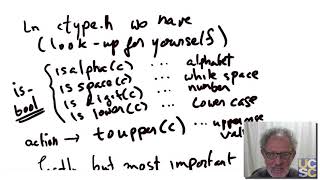 In ctype.h we have
(look-up for yourself)
is-bool
isalpha(c) ... alphabet
isspace(c) ... white space
isdigit(c) ... number
islower(c) ... lower case
action → toupper(c) ... uppercase
but most important
UC
SC